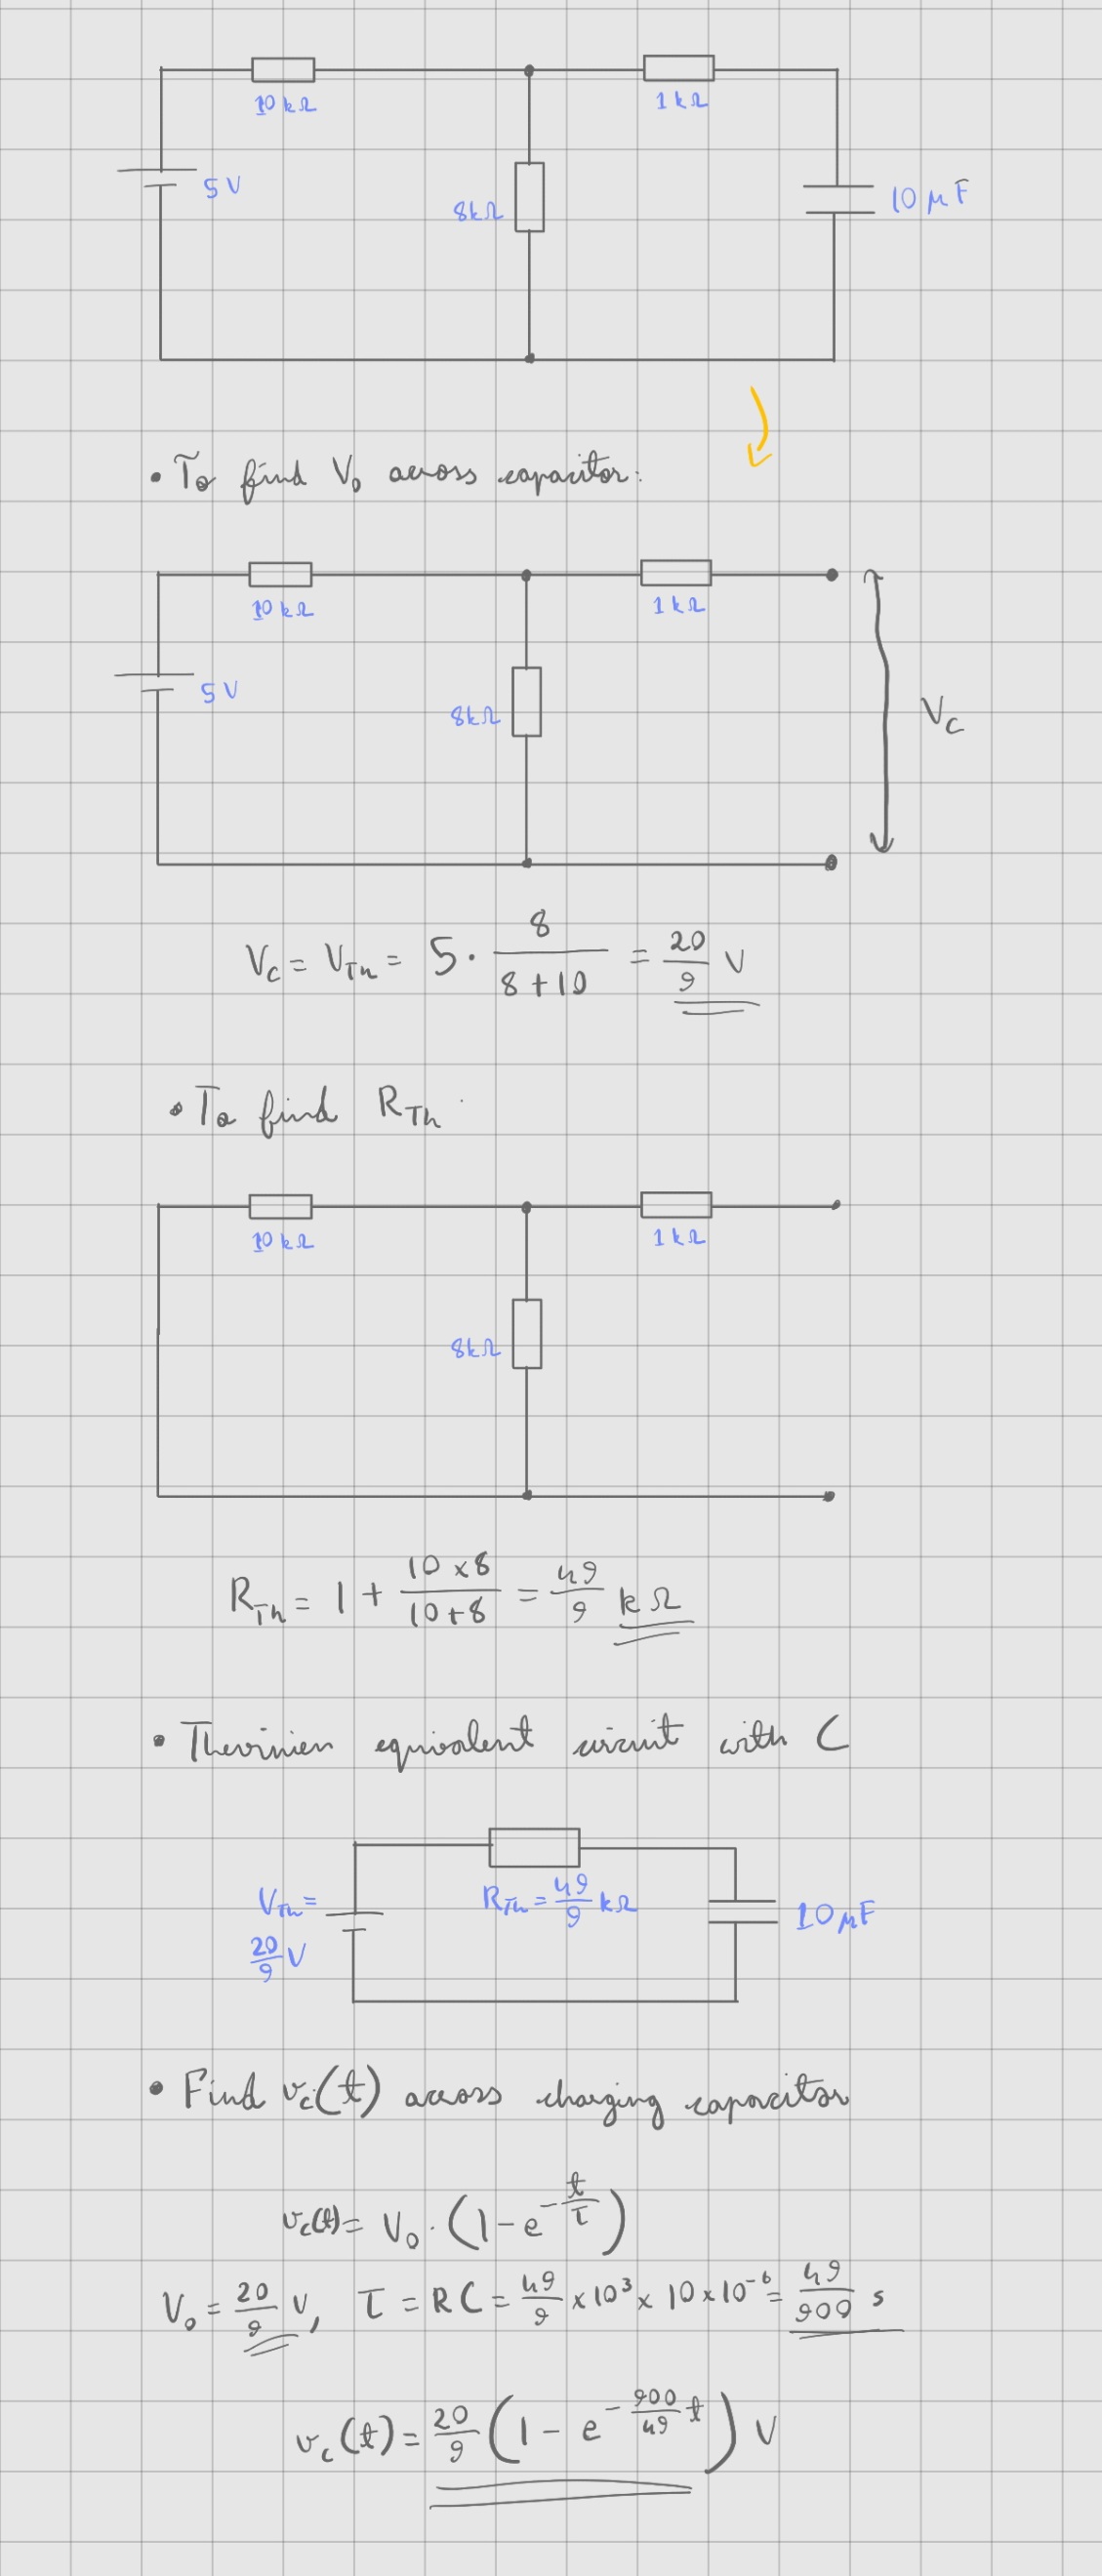 10 kΩ
1 kΩ
5 V
8kΩ
10 μF
• To find V₀ across capacitor:
10 kΩ
1 kΩ
5 V
8kΩ
V_C
V_C = V_Th = 5 · 8/(8+10) = 20/9 V
• To find R_Th
10 kΩ
1 kΩ
8kΩ
R_Th = 1 + (10×8)/(10+8) = 49/9 kΩ
• Thevinien equivalent circuit with C
V_Th = 20/9 V
R_Th = 49/9 kΩ
10μF
• Find v_c(t) across charging capacitor
v_c(t) = V₀ · (1 - e^(-t/τ))
V₀ = 20/9 V, τ = RC = 49/9 × 10³ × 10 × 10⁻⁶ = 49/900 s
v_c(t) = 20/9 (1 - e^(-900/49 t)) V